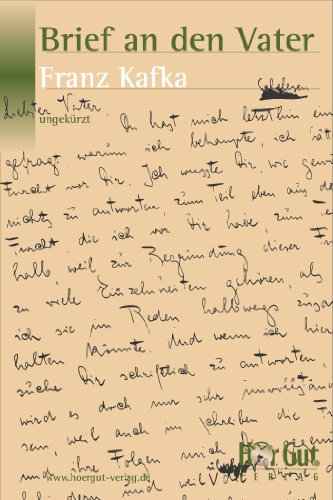 Brief an den Vater
Franz Kafka
Schelesen
Liebster Vater,
ungekürzt
Du hast mich letzthin ein
gefragt, warum ich behaupte, ich hätt
Furcht vor Dir. Ich wusste Dir, wie gewö
nichts zu antworten, zum Teil eben aus de
Furcht, die ich vor Dir habe, zum
halb, weil zur Begründung dieser F
zu viele Einzelnheiten gehören, als
ich sie im Reden halbwegs zusam
halten könnte. Und wenn ich hier
suche Dir schriftlich zu antworten,
wird es doch nur sehr unvollstän
sein, weil auch im Schreiben die F
und ihre Folgen mich
Hör Gut!
VERLAG
www.hoergut-verlag.de